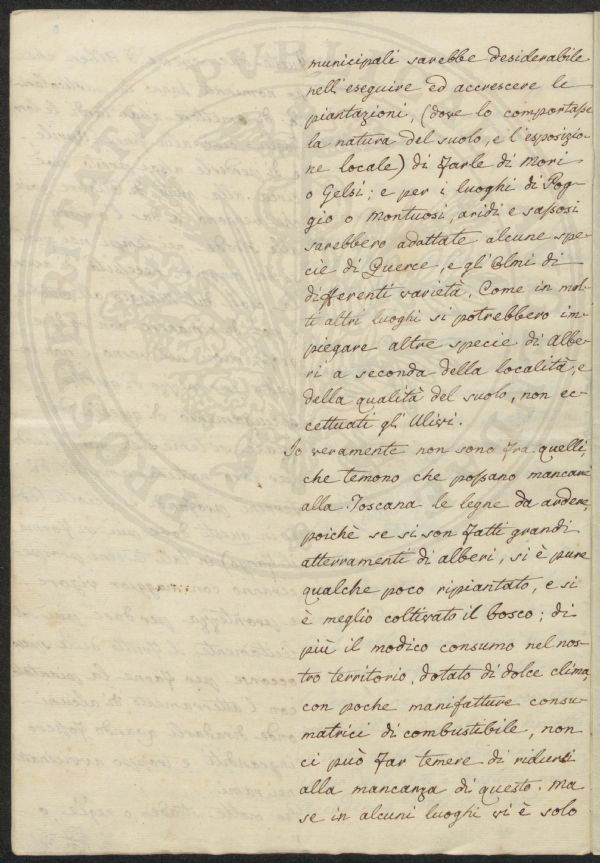 municipali sarebbe desiderabile
nell'eseguire ed accrescere le
piantazioni, (dove lo comportasse
la natura del suolo, e l'esposizio-
ne locale) di farle di Mori
o Gelsi; e per i luoghi di Pog-
gio o Montuosi, aridi e sassosi
sarebbero adattate alcune spe-
cie di Querce, e gl'Olmi di
differenti varietà. Come in mol-
ti altri luoghi si potrebbero im-
piegare altre specie di Albe-
ri a seconda della località, e
della qualità del suolo, non ec-
cettuati gl'Ulivi.
Io veramente non sono fra quelli,
che temono che possano mancare
alla Toscana le legne da ardere,
poichè se si son fatti grandi
atterramenti di alberi, si è pure
qualche poco ripiantato, e si
è meglio coltivato il bosco; di
più il modico consumo nel nos-
tro territorio, dotato di dolce clima,
con poche manifatture consu-
matrici di combustibile, non
ci può far temere di ridursi
alla mancanza di questo. Ma
se in alcuni luoghi vi è solo